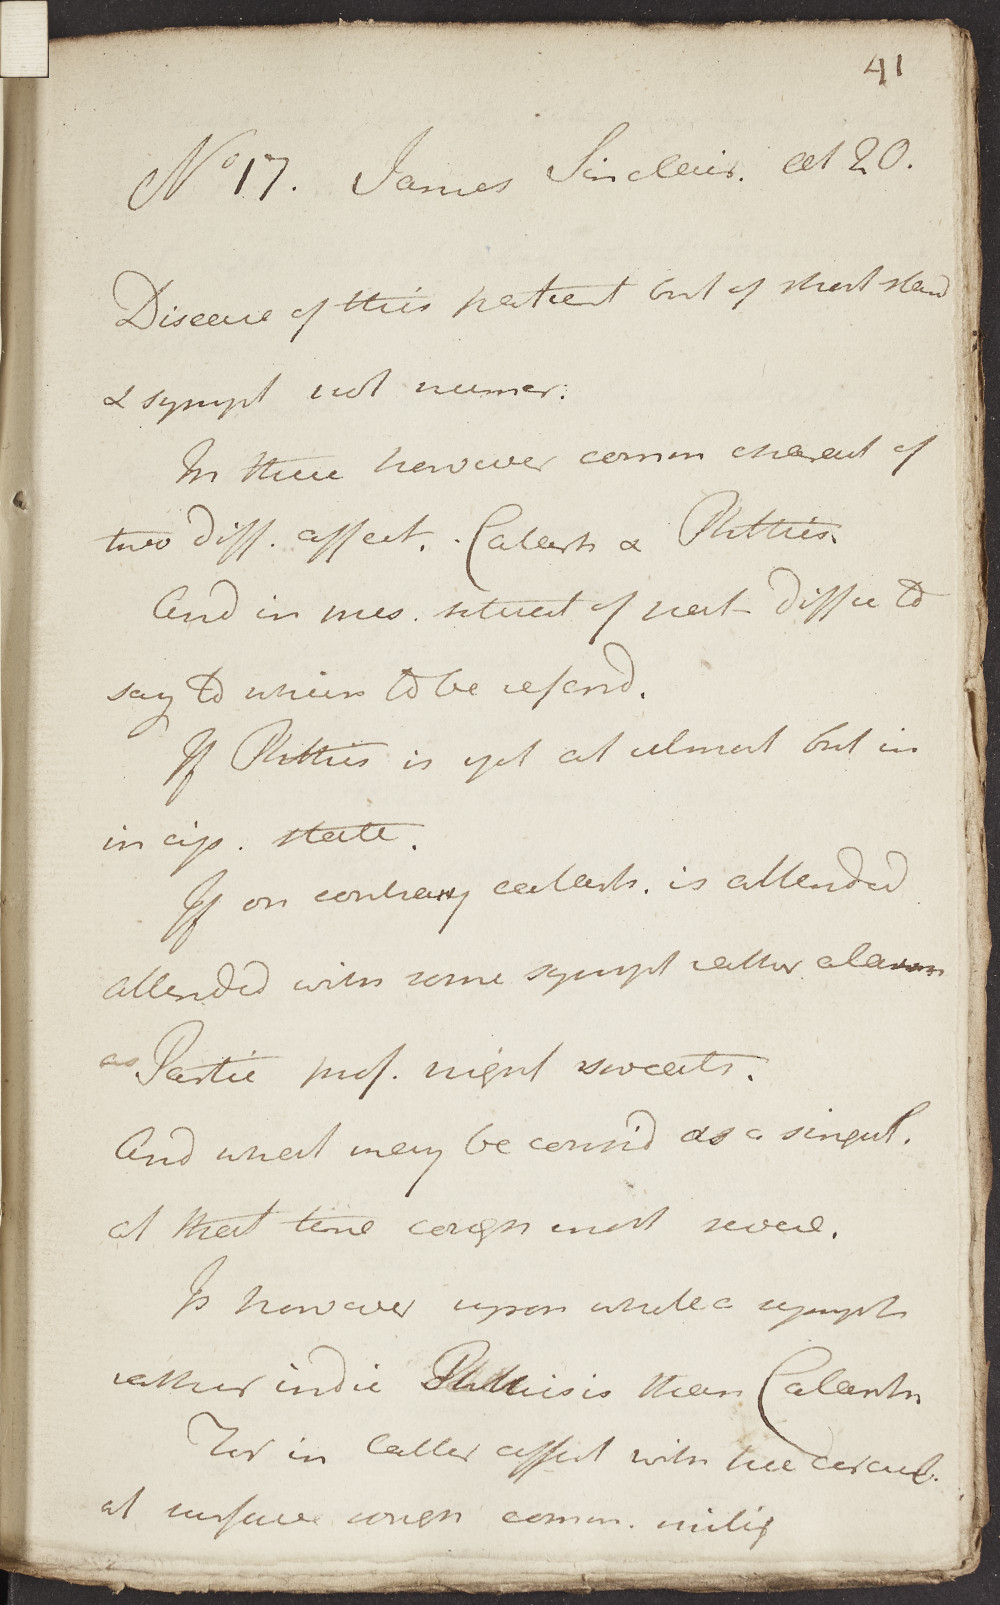 41
No 17. James Sinclair. aet 20.
Disease of this patient but of short stand
& sympt not numer:
In these however common charact of
two diff. affect. Catarrh & Phthisis.
And in mes. situat of pat diffic to
say to which to be referrd.
If Phthisis is yet at utmost but in
incip. state.
If on contrary catarrh. is attended
attended with some sympt rather alarm
as Partic prof. night sweats.
And what may be consid as a singul.
at that time cough most severe.
Is however upon whole a symptm
rather indic Phthisis is than Catarrh
For in latter affect with free circul.
at surface cough common. mitig